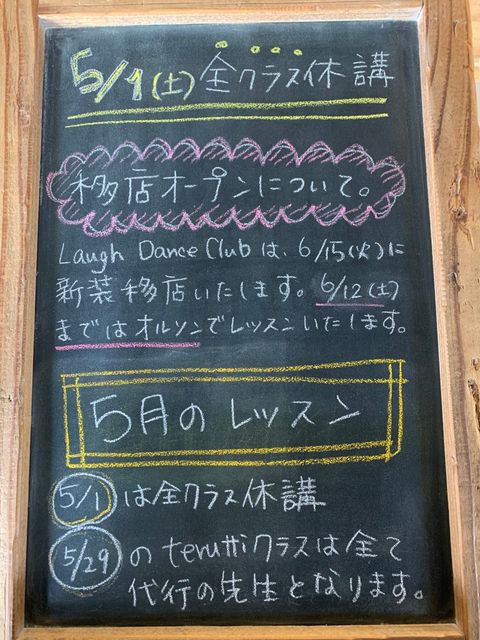 5/1(土)全クラス休講
移店オープンについて。
Laugh Dance Clubは、6/15(火)に
新装移店いたします。6/12(土)
まではオルソンでレッスンいたします。
5月のレッスン
5/1は全クラス休講
5/29のteruttiクラスは全て
代行の先生となります。